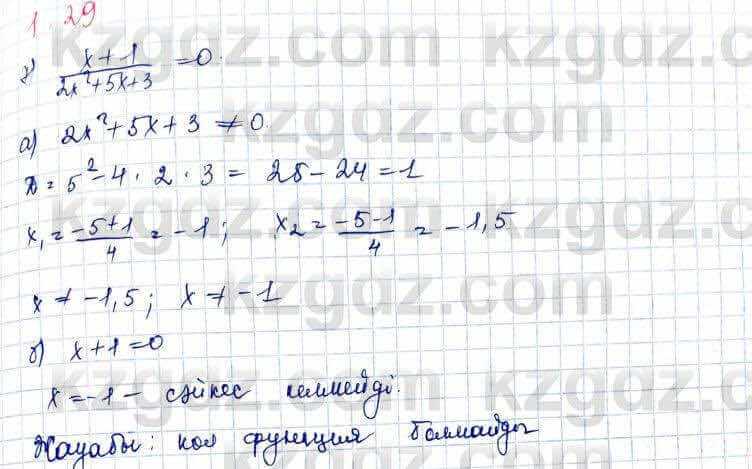 1.29
г) (x+1)/(2x²+5x+3) = 0.
а) 2x²+5x+3 ≠ 0.
D = 5² - 4 · 2 · 3 = 25 - 24 = 1
x₁ = (-5+1)/4 = -1; x₂ = (-5-1)/4 = -1,5
x ≠ -1,5; x ≠ -1
б) x+1=0
x = -1 - сәйкес келмейді.
Жауабы: нөл функция болмайды
kzgdz.com
kzgdz.com
kzgdz.com
kzgdz.com
kzgdz.com